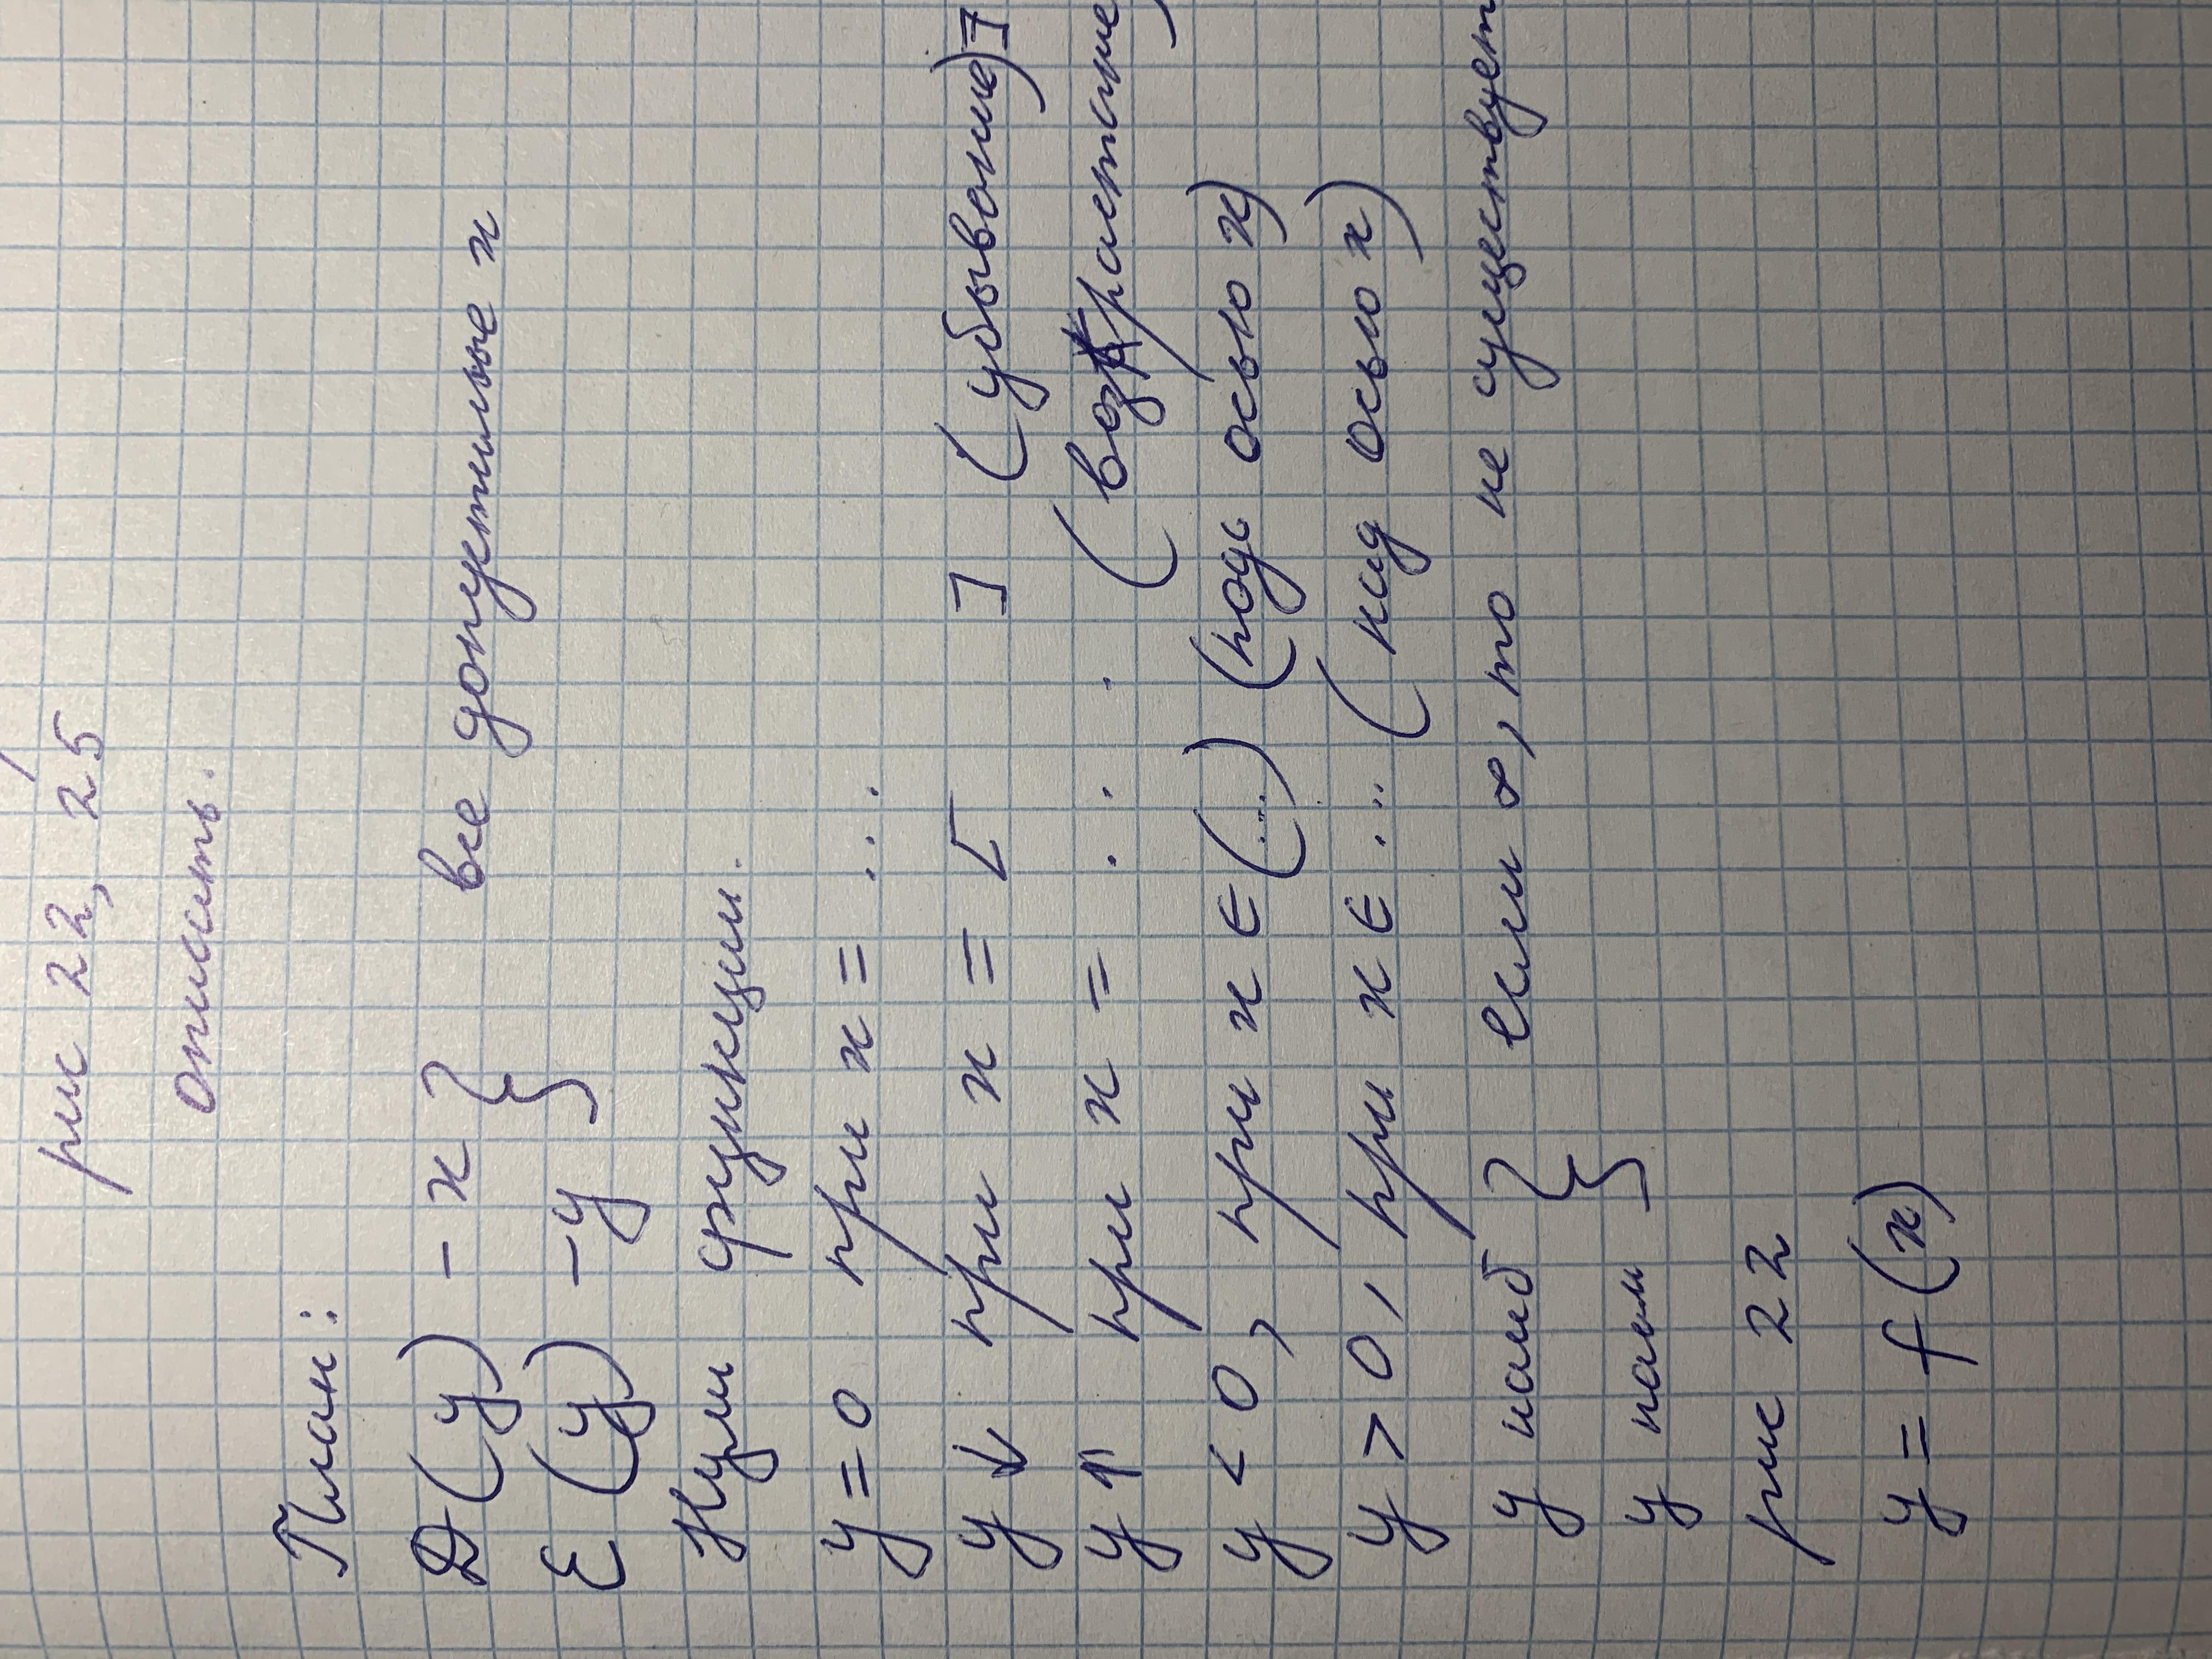 рис 22, 25
описать.
План:
D(y) - x } все допустимые x
E(y) - y
Нули функции.
y = 0 при x = ...
y ↓ при x = [ ] (убывание)]
y ↑ при x = . . . (возрастание)
y < 0, при x ∈ (...) (подь осью x)
y > 0, при x ∈ ... (над осью x)
y наиб } если ∞, то не существует
y наим
рис 22
y = f(x)